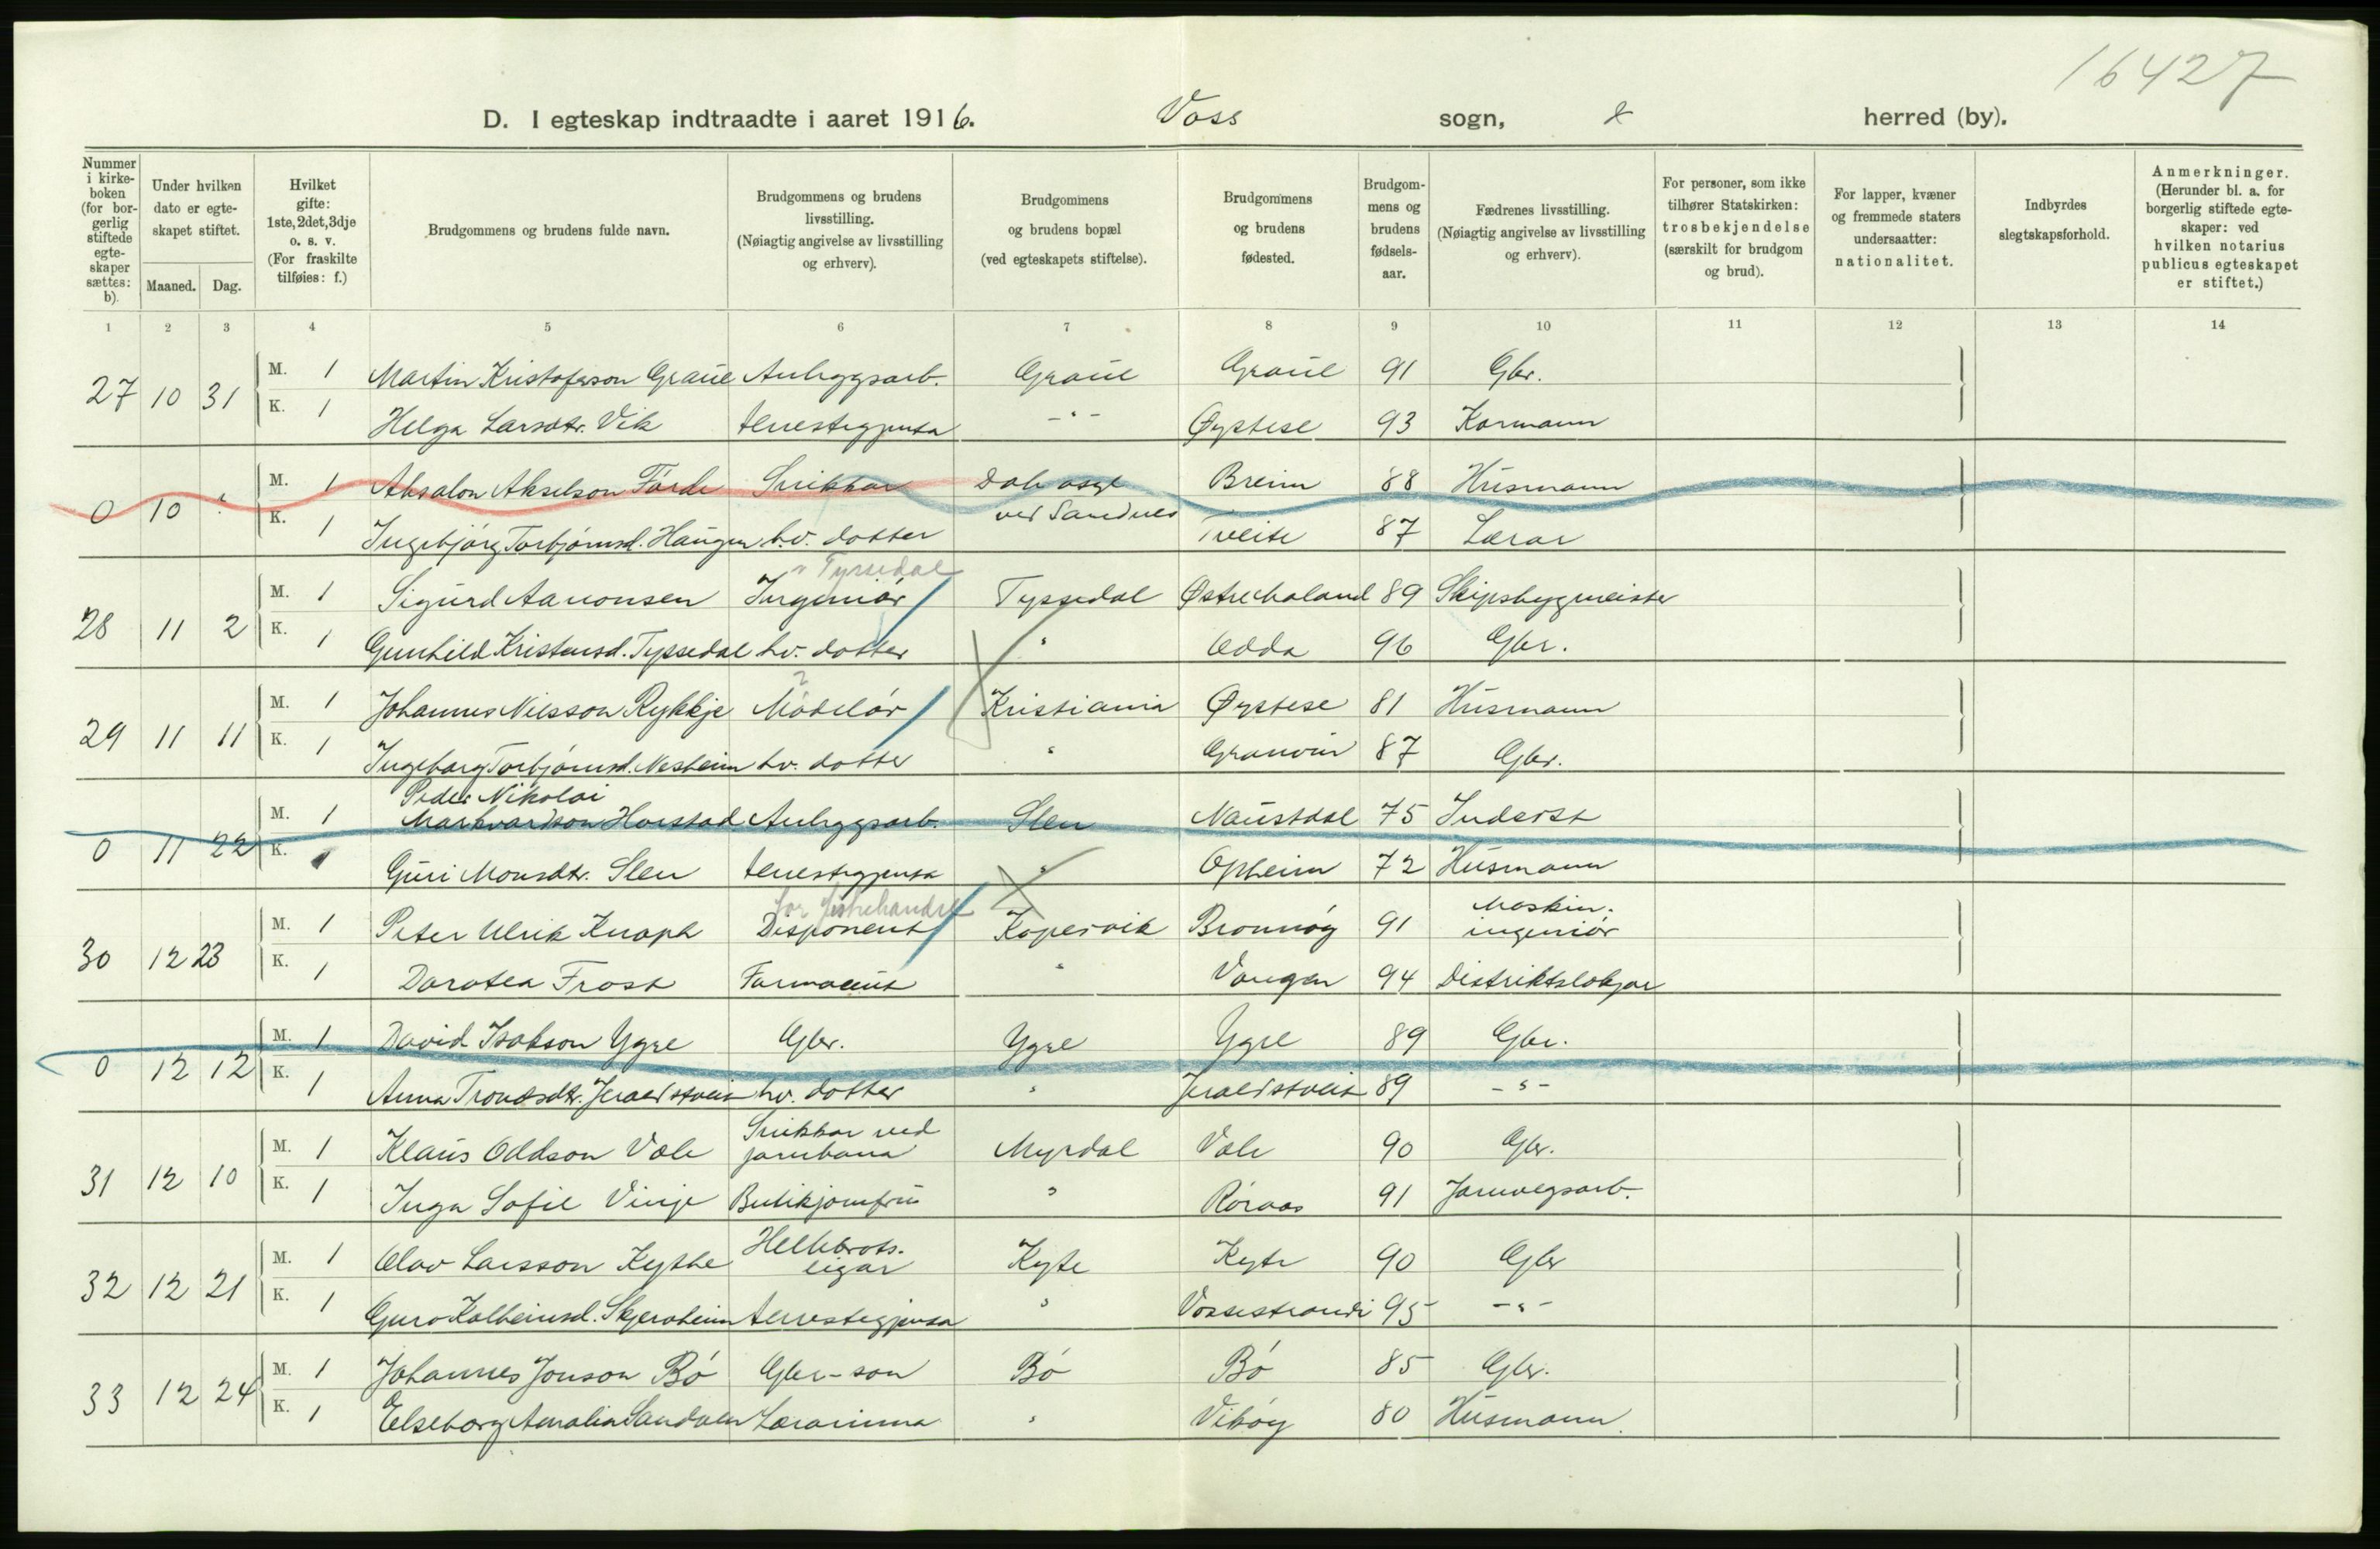 16427
D. I egteskap indtraadte i aaret 1916. Voss sogn, herred (by).
Nummer i kirkeboken (for borgerlig stiftede egteskaper sættes: b).
Under hvilken dato er egteskapet stiftet.
Maaned. Dag.
Hvilket gifte: 1ste, 2det, 3dje o. s. v. (For fraskilte tilføies: f.)
Brudgommens og brudens fulde navn.
Brudgommens og brudens livsstilling. (Nøiagtig angivelse av livsstilling og erhverv).
Brudgommens og brudens bopæl (ved egteskapets stiftelse).
Brudgommens og brudens fødested.
Brudgommens og brudens fødselsaar.
Fædrenes livsstilling. (Nøiagtig angivelse av livsstilling og erhverv).
For personer, som ikke tilhører Statskirken: trosbekjendelse (særskilt for brudgom og brud).
For lapper, kvæner og fremmede staters undersaatter: nationalitet.
Indbyrdes slegtskapsforhold.
Anmerkninger. (Herunder bl. a. for borgerlig stiftede egteskaper: ved hvilken notarius publicus egteskapet er stiftet.)
1 2 3 4 5 6 7 8 9 10 11 12 13 14
27 10 31 M. 1 Martin Kristoferson Graue Anleggsarb. Graue Graue 91 Gbr.
K. 1 Helga Larsdtr. Vik tenestegjenta -"- Øystese 93 Kormann
0 10 M. 1 Aksalon Akselson Förde Snikkar Dale Breim 88 Husmann
ved Sandnes
K. 1 Ingebjörg Torbjörnsd. Haugen hv. dotter Tveite 87 Lærar
Tyssedal
28 11 2 M. 1 Sigurd Aanonsen Ingeniör Tyssedal Østre Haland 89 Skipsbygmeister
K. 1 Gunhild Kristensd. Tyssedal hv. dotter " Odda 96 Gbr.
?
29 11 11 M. 1 Johannes Nilsson Rykkje Modelör Kristiania Øystese 81 Husmann
K. 1 Ingeborg Torbjörnsd. Nesheim hv. dotter " Granvin 87 Gbr.
Peder Nikolai
0 11 22 M. 1 Markvardson Horstad Anleggsarb. Slen Naustdal 75 Inderst
K. 1 Guri Monsdtr. Slen tenestegjenta " Opheim 72 Husmann
30 12 23 M. 1 Peter Ulrik Knaph Disponent Kopervik Bronnöy 91 Maskin-
ingeniör
K. 1 Dorotea Frost Farmaceut " Vangen 94 Distriktslækjar
0 12 12 M. 1 David Isakson Ygre Gbr. Ygre Ygre 89 Gbr.
K. 1 Anna Trondsdtr. Jeraldstveit hv. dotter " Jeraldstveit 89 -"-
Snikkar ved
31 12 10 M. 1 Klaus Oddson Vale jarnbana Myrdal Vale 90 Gbr.
K. 1 Inga Sofie Vinje Butikjomfru " Röraas 91 Jarnvegsarb.
Hellebrots-
32 12 21 M. 1 Olav Larsson Kythe eigar Kyte Kyte 90 Gbr
K. 1 Guro Kolbeinsd. Skjerveheim tenestegjenta " Vossestrandi 95 -"-
33 12 24 M. 1 Johannes Jonson Bö Gbr-son Bö Bö 85 Gbr.
K. 1 Elseborg Amalia Sandven Lærarinna " Viköy 80 Husmann.